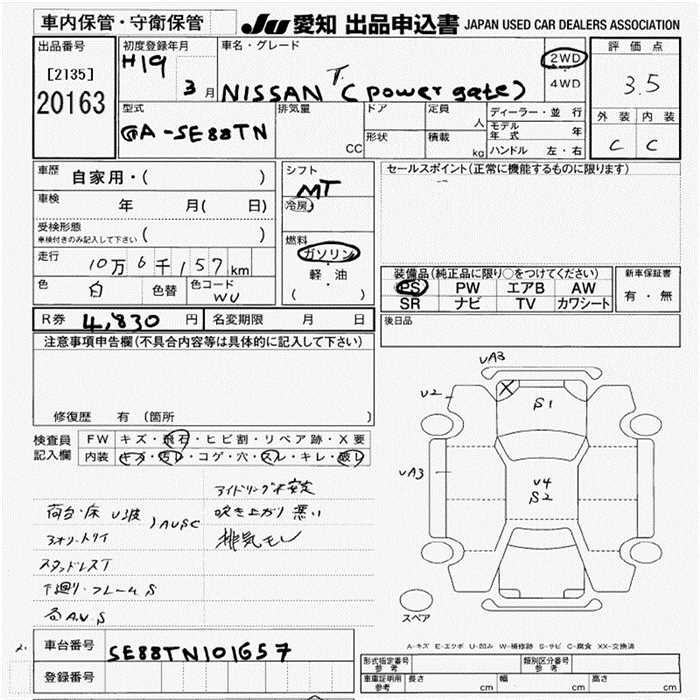 車内保管・守衛保管
JU 愛知 出品申込書 JAPAN USED CAR DEALERS ASSOCIATION
出品番号
[2135]
20163
初度登録年月
H19 3月
車名・グレード
NISSAN T. (power gate)
2WD
4WD
評価点
3.5
外装 内装
C C
型式
-SE88TN
排気量
CC
ドア
形状
定員
人
積載
kg
ディーラー・並行
モデル年式 年
ハンドル 左・右
車歴 自家用・( )
車検 年 月( 日)
受検形態
車検付きのみ記入して下さい ( )
走行 10万6千157km
色 白 色替 色コード WU
シフト
MT
冷房
燃料
ガソリン
軽・油
( )
セールスポイント(正常に機能するものに限ります)
装備品(純正品に限り○をつけてください)
PS PW エアB AW
SR ナビ TV カワシート
新車保証書
有・無
R券 4,830 円 名変期限 月 日
後日品
注意事項申告欄(不具合内容等は具体的に記入して下さい)
修復歴 有 (箇所 )
検査員記入欄
FW キズ・飛石・ヒビ割・リペア跡・X要
内装 キズ・汚レ・コゲ・穴・スレ・キレ・破レ
アイドリング不安定
荷台・床 U波 ) AUSC
吹き上がり悪い
排気モレ
スタッドレスT
下廻り・フレームS
各A.U.S
UA3
U2
S1
UA3
U4
S2
スペア
A-キズ E-エクボ U-凹み W-補修跡 S-サビ C-腐食 XX-交換済
車台番号 SE88TN101657
登録番号
形式指定番号 参考
類別区分番号 参考
車庫証明用 参考 長さ cm 幅 cm 高さ cm